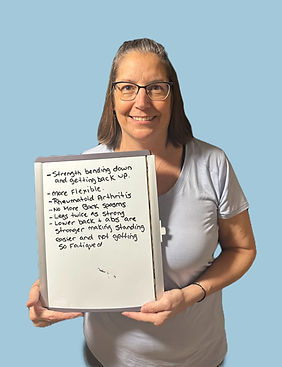 - Strength bending down
and getting back up.
- More Flexible.
- Rheumatoid Arthritis
- No More Back spasms
- Legs twice as strong
- Lower back & abs are
stronger making standing
easier and not getting
so fatigued